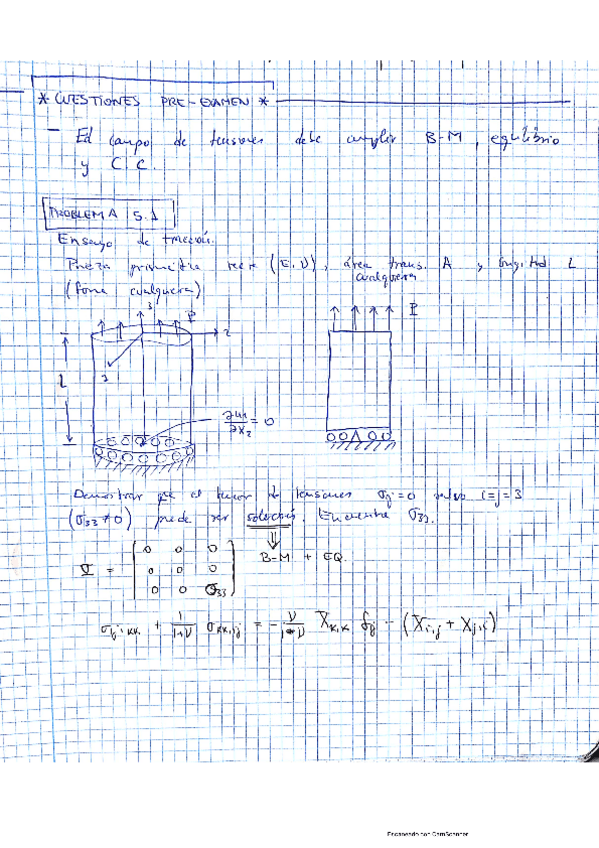 * CUESTIONES PRE-EXAMEN *
- El campo de tensiones debe cumplir B-M, equilibrio
y C.C.
PROBLEMA 5.1
Ensayo de tracción.
Pieza prismática recta (E, ν), área trans. A y longitud L
cualquiera
(forma cualquiera)
3
P
2
1
L
∂u₁/∂x₂ = 0
P
Demostrar que el tensor de tensiones σij = 0 salvo i=j=3
(σ33 ≠ 0) puede ser solución. Encuentre σ33.
⇓
B-M + EQ.
σ = ( 0 0 0
0 0 0
0 0 σ33 )
σij,kk + 1/(1+ν) σkk,ij = - ν/(1-ν) Xk,k δij - (Xi,j + Xj,i)
Escaneado con CamScanner